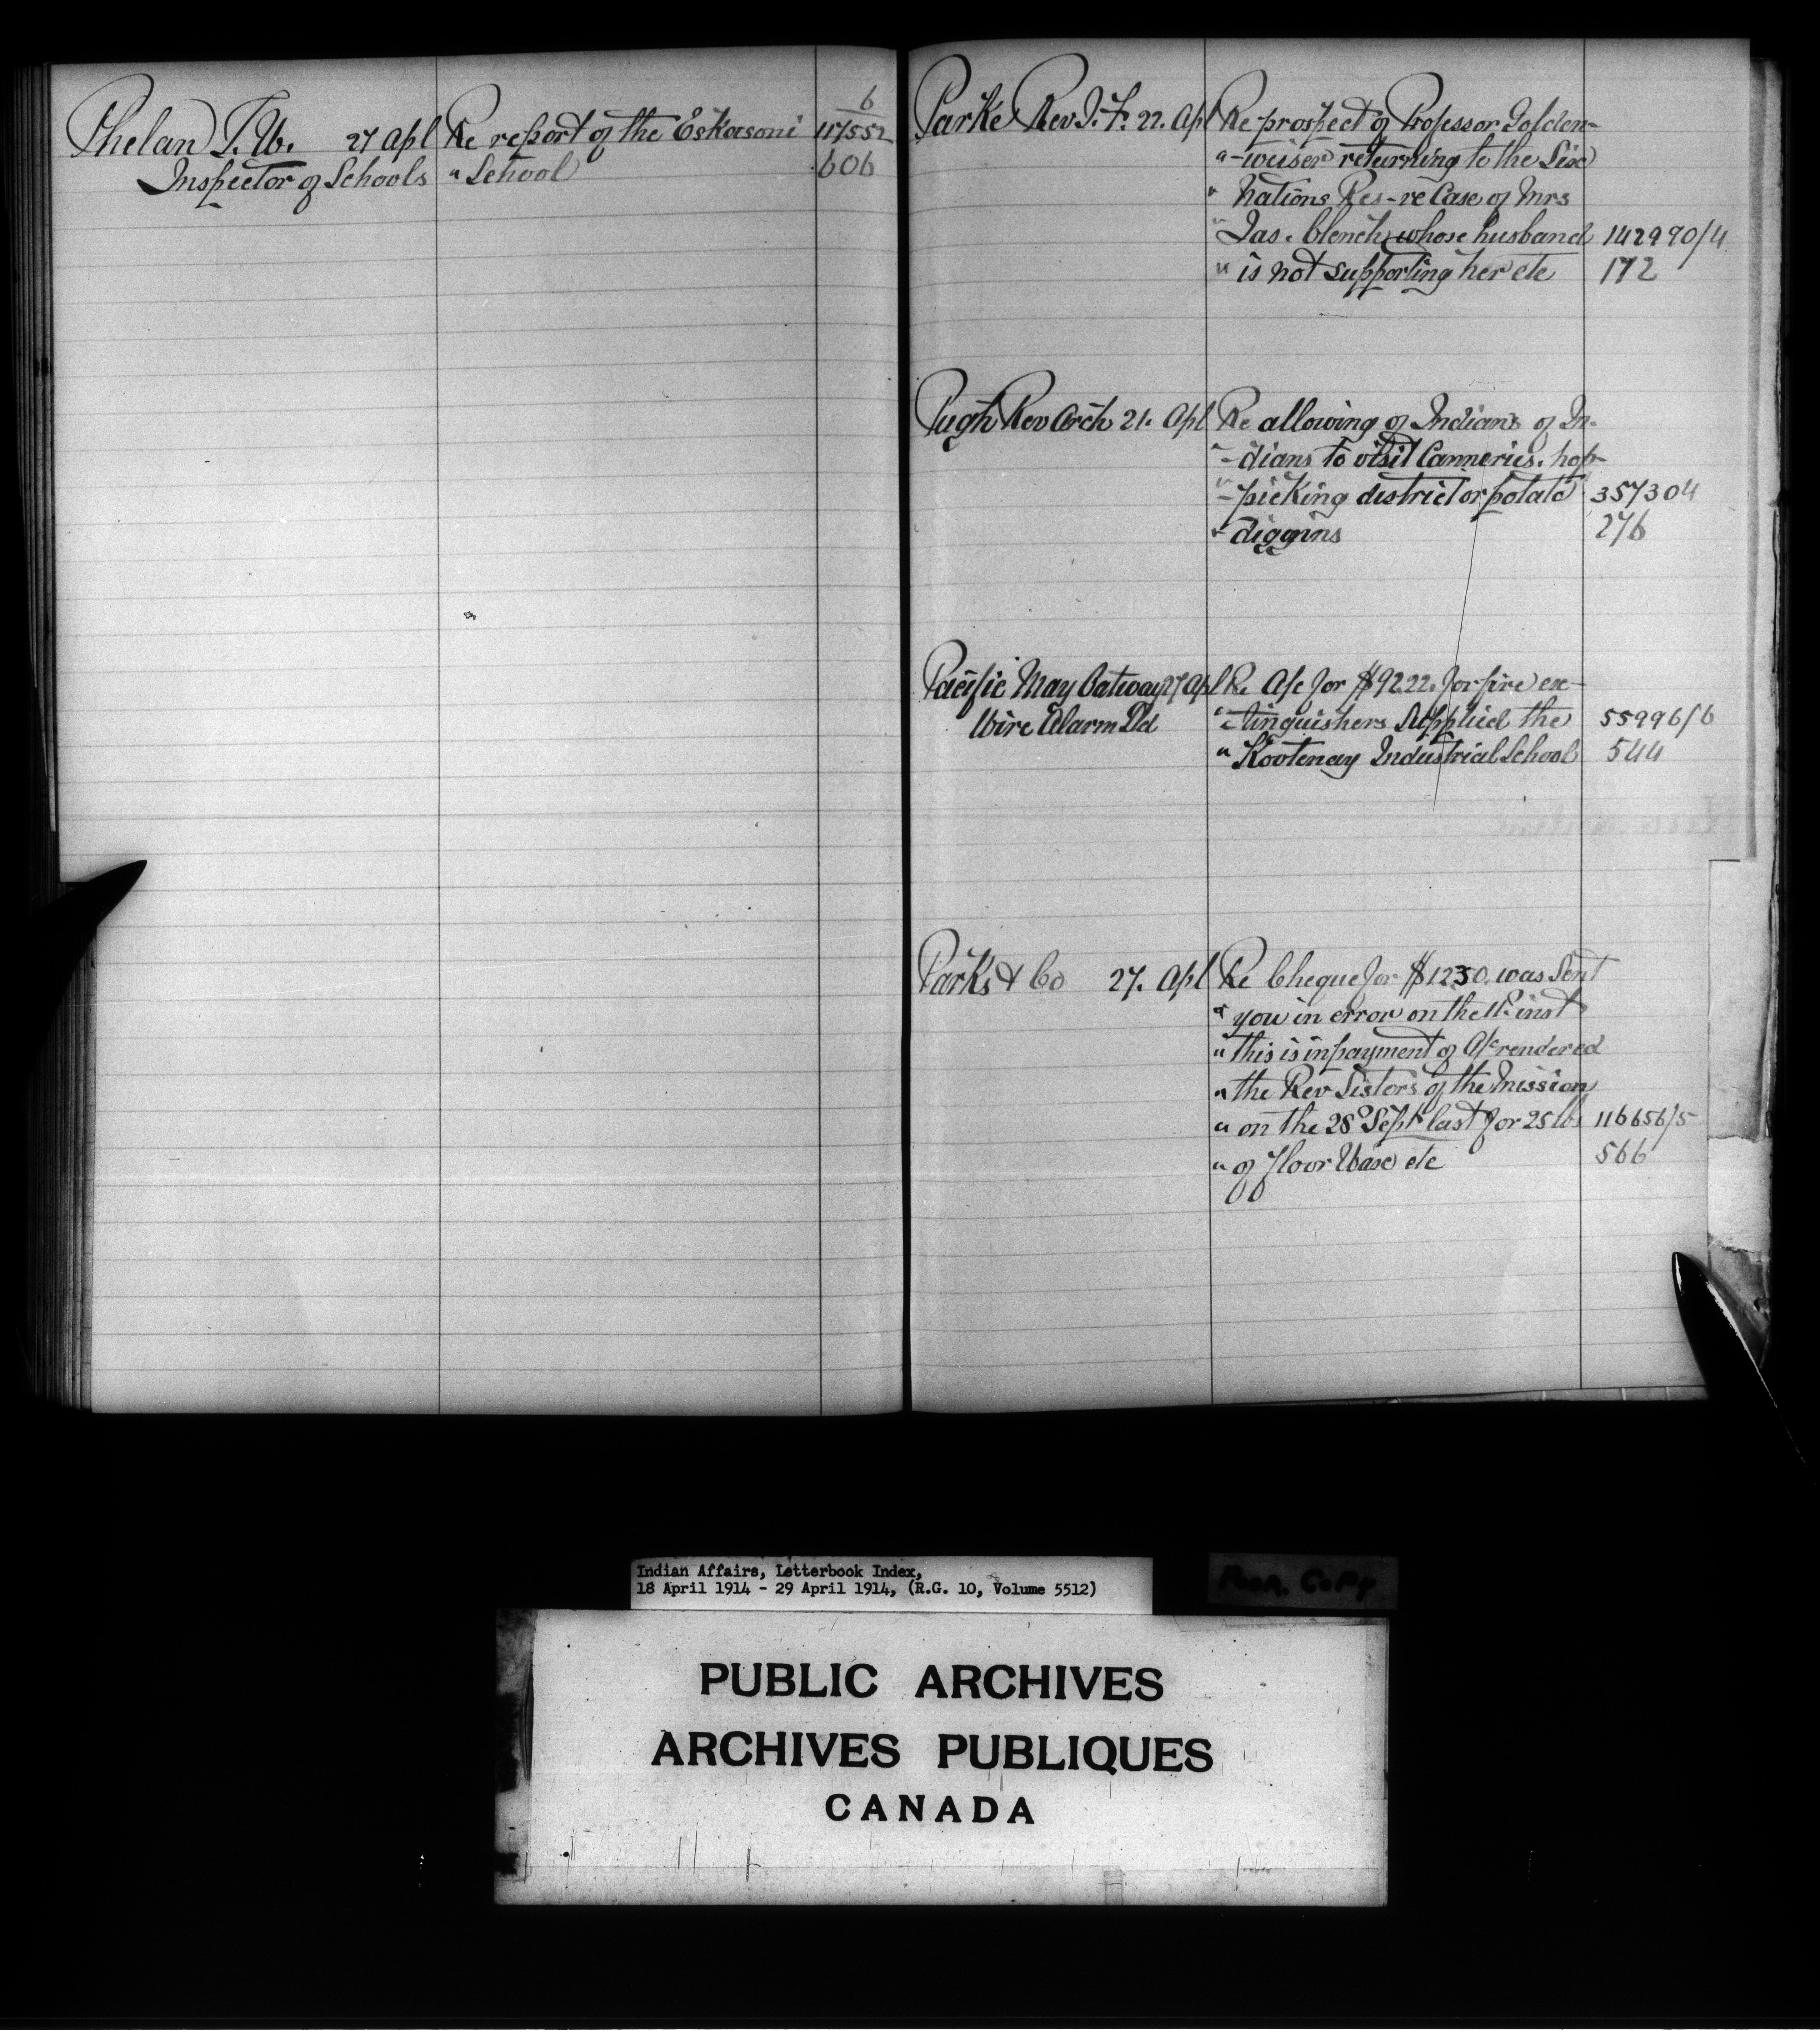 6
Phelan T. W. 27 Apl Re report of the Eskasoni 117552
Inspector of Schools " School 606
Parke Rev J. F. 22. Apl Re prospect of Professor Golden-
" -weiser returning to the Six
" Nations Res - re Case of Mrs
" Jas. Clench, whose husband 142990/4
" is not supporting her etc 172
Pugh Rev Arch 21. Apl Re allowing of Indians of In-
" -dians to visit Canneries, hop-
" -picking district or potato 357304
" diggins 276
Pacific May Oatway 27 Apl Re A/c for $92.22. for fire ex-
Wire Alarm Ld " -tinguishers Supplied the 55996/6
" Kootenay Industrial School 544
Parks & Co 27. Apl Re Cheque for $12.50. was Sent
" you in error on the inst
" this is in payment of A/c rendered
" the Rev Sisters of the Mission
" on the 28th Sept last for 25 lbs 116656/5
" of floor Wax etc 566
Indian Affairs, Letterbook Index,
18 April 1914 - 29 April 1914, (R.G. 10, Volume 5512)
Poor Copy
PUBLIC ARCHIVES
ARCHIVES PUBLIQUES
CANADA